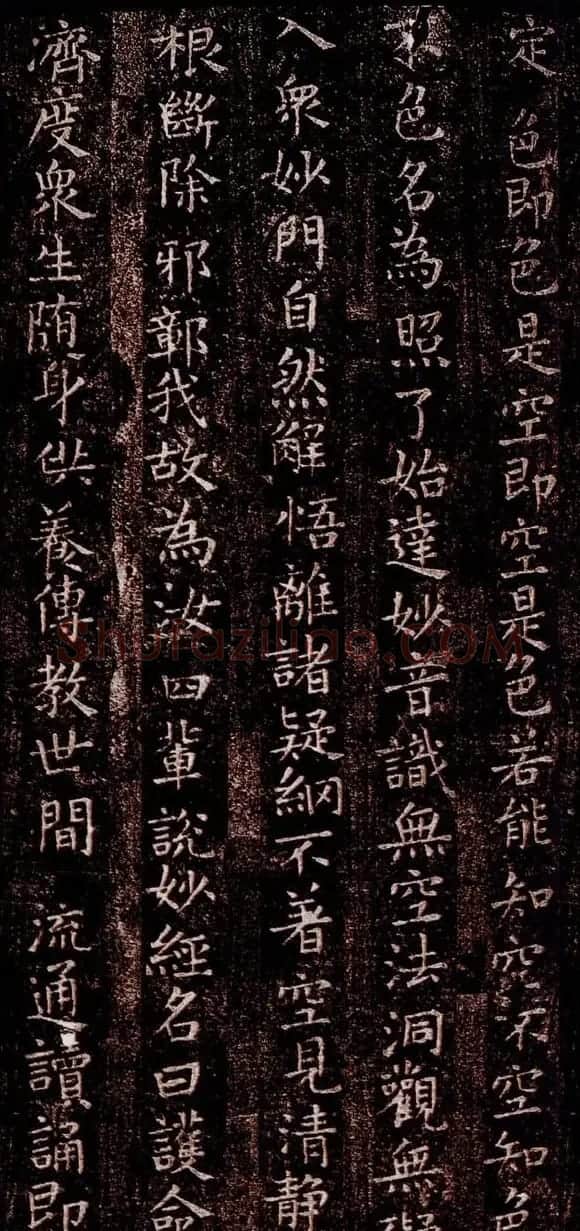 定色即色是空即空是色若能知空不空知色
不色名為照了始達妙音識無空法洞觀無礙
入衆妙門自然解悟離諸疑網不着空見清静
根斷除邪鄣我故為汝四輩說妙經名曰護命
濟度衆生随身供養傳教世間流通讀誦即
Shufaziliao.COM